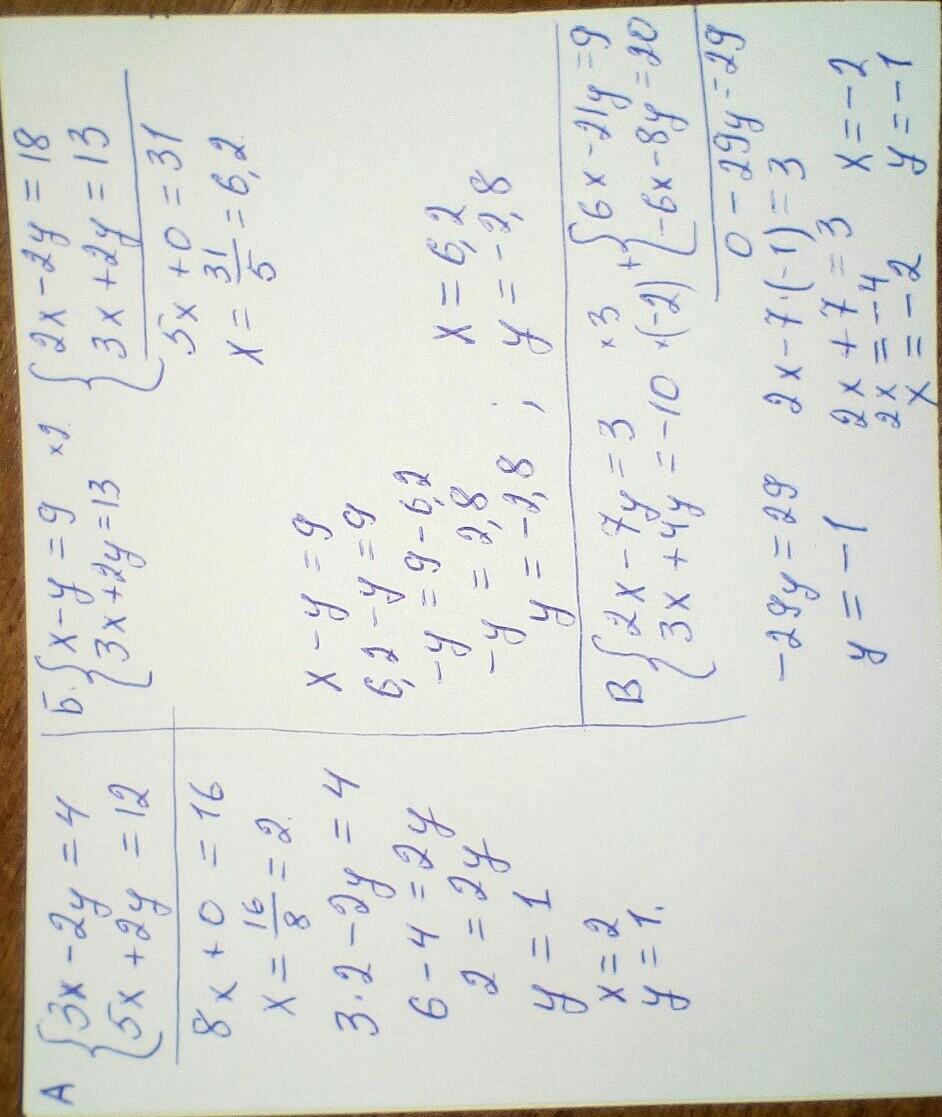 А
{3x - 2y = 4
{5x + 2y = 12
8x + 0 = 16
x = 16/8 = 2
3·2 - 2y = 4
6 - 4 = 2y
2 = 2y
y = 1
x = 2
y = 1.
Б. {x - y = 9 ×2
{3x + 2y = 13
{2x - 2y = 18
{3x + 2y = 13
5x + 0 = 31
x = 31/5 = 6,2
x - y = 9
6,2 - y = 9
-y = 9 - 6,2
-y = 2,8
y = -2,8 ;
x = 6,2
y = -2,8
В {2x - 7y = 3 ×3
{3x + 4y = -10 ×(-2)
+ {6x - 21y = 9
{-6x - 8y = 20
0 - 29y = 29
-29y = 29
y = -1
2x - 7·(-1) = 3
2x + 7 = 3
2x = -4
x = -2
x = -2
y = -1